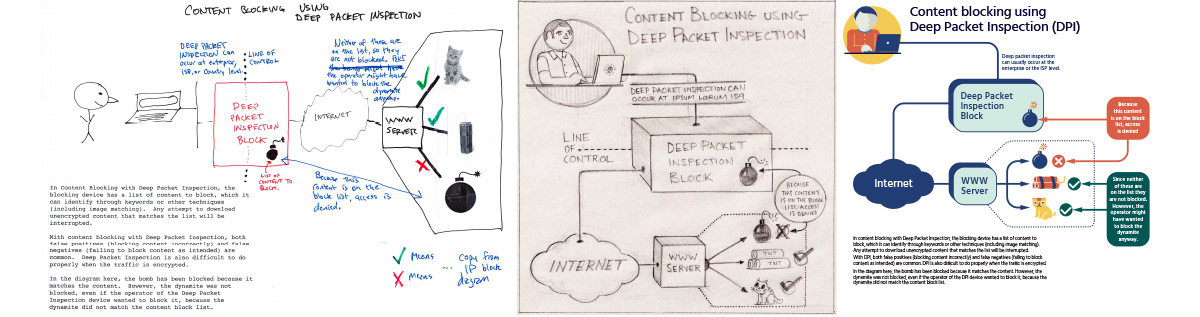 CONTENT BLOCKING USING
DEEP PACKET INSPECTION
DEEP PACKET
INSPECTION CAN
OCCUR AT enterprise,
ISP, or country level.
LINE OF
CONTROL
Neither of these are
on the list, so they
are not blocked. But
the operator might have
wanted to block the
dynamite
anyway.
DEEP
PACKET
INSPECTION
BLOCK
LIST OF
CONTENT TO
BLOCK.
INTERNET
WWW
SERVER
Because this
content is on the
block list, access is
denied.
✓ Means
✗ Means
...
copy from
IP block
diagram
In Content Blocking with Deep Packet Inspection, the
blocking device has a list of content to block, which it
can identify through keywords or other techniques
(including image matching). Any attempt to download
unencrypted content that matches the list will be
interrupted.
With content blocking by Deep Packet Inspection, both
false positives (blocking content incorrectly) and false
negatives (failing to block content as intended) are
common. Deep Packet Inspection is also difficult to do
properly when the traffic is encrypted.
In the diagram here, the bomb has been blocked because it
matches the content. However, the dynamite was not
blocked, even if the operator of the Deep Packet
Inspection device wanted to block it, because the
dynamite did not match the content block list.
CONTENT BLOCKING USING
DEEP PACKET INSPECTION
DEEP PACKET INSPECTION CAN
OCCUR AT IPSUM LORUM ISG
LINE
OF
CONTROL
DEEP PACKET
INSPECTION
BLOCK
BECAUSE
THIS CONTENT
IS ON THE BLOCK
LIST, ACCESS
IS DENIED
INTERNET
WWW
SERVER
TNT
TNT
Content blocking using
Deep Packet Inspection (DPI)
Deep packet inspection
can usually occur at the
enterprise or the ISP level.
Deep Packet
Inspection
Block
Because
this content
is on the block
list, access
is denied
Internet
WWW
Server
Since neither
of these are
on the list they
are not blocked.
However, the
operator might
have wanted
to block the
dynamite
anyway.
In content blocking with Deep Packet Inspection, the blocking device has a list of content to
block, which it can identify through keywords or other techniques (including image matching).
Any attempt to download unencrypted content that matches the list will be interrupted.
With DPI, both false positives (blocking content incorrectly) and false negatives (failing to block
content as intended) are common. DPI is also difficult to do properly when the traffic is encrypted.
In the diagram here, the bomb has been blocked because it matches the content. However, the
dynamite was not blocked, even if the operator of the DPI device wanted to block it, because the
dynamite did not match the content block list.